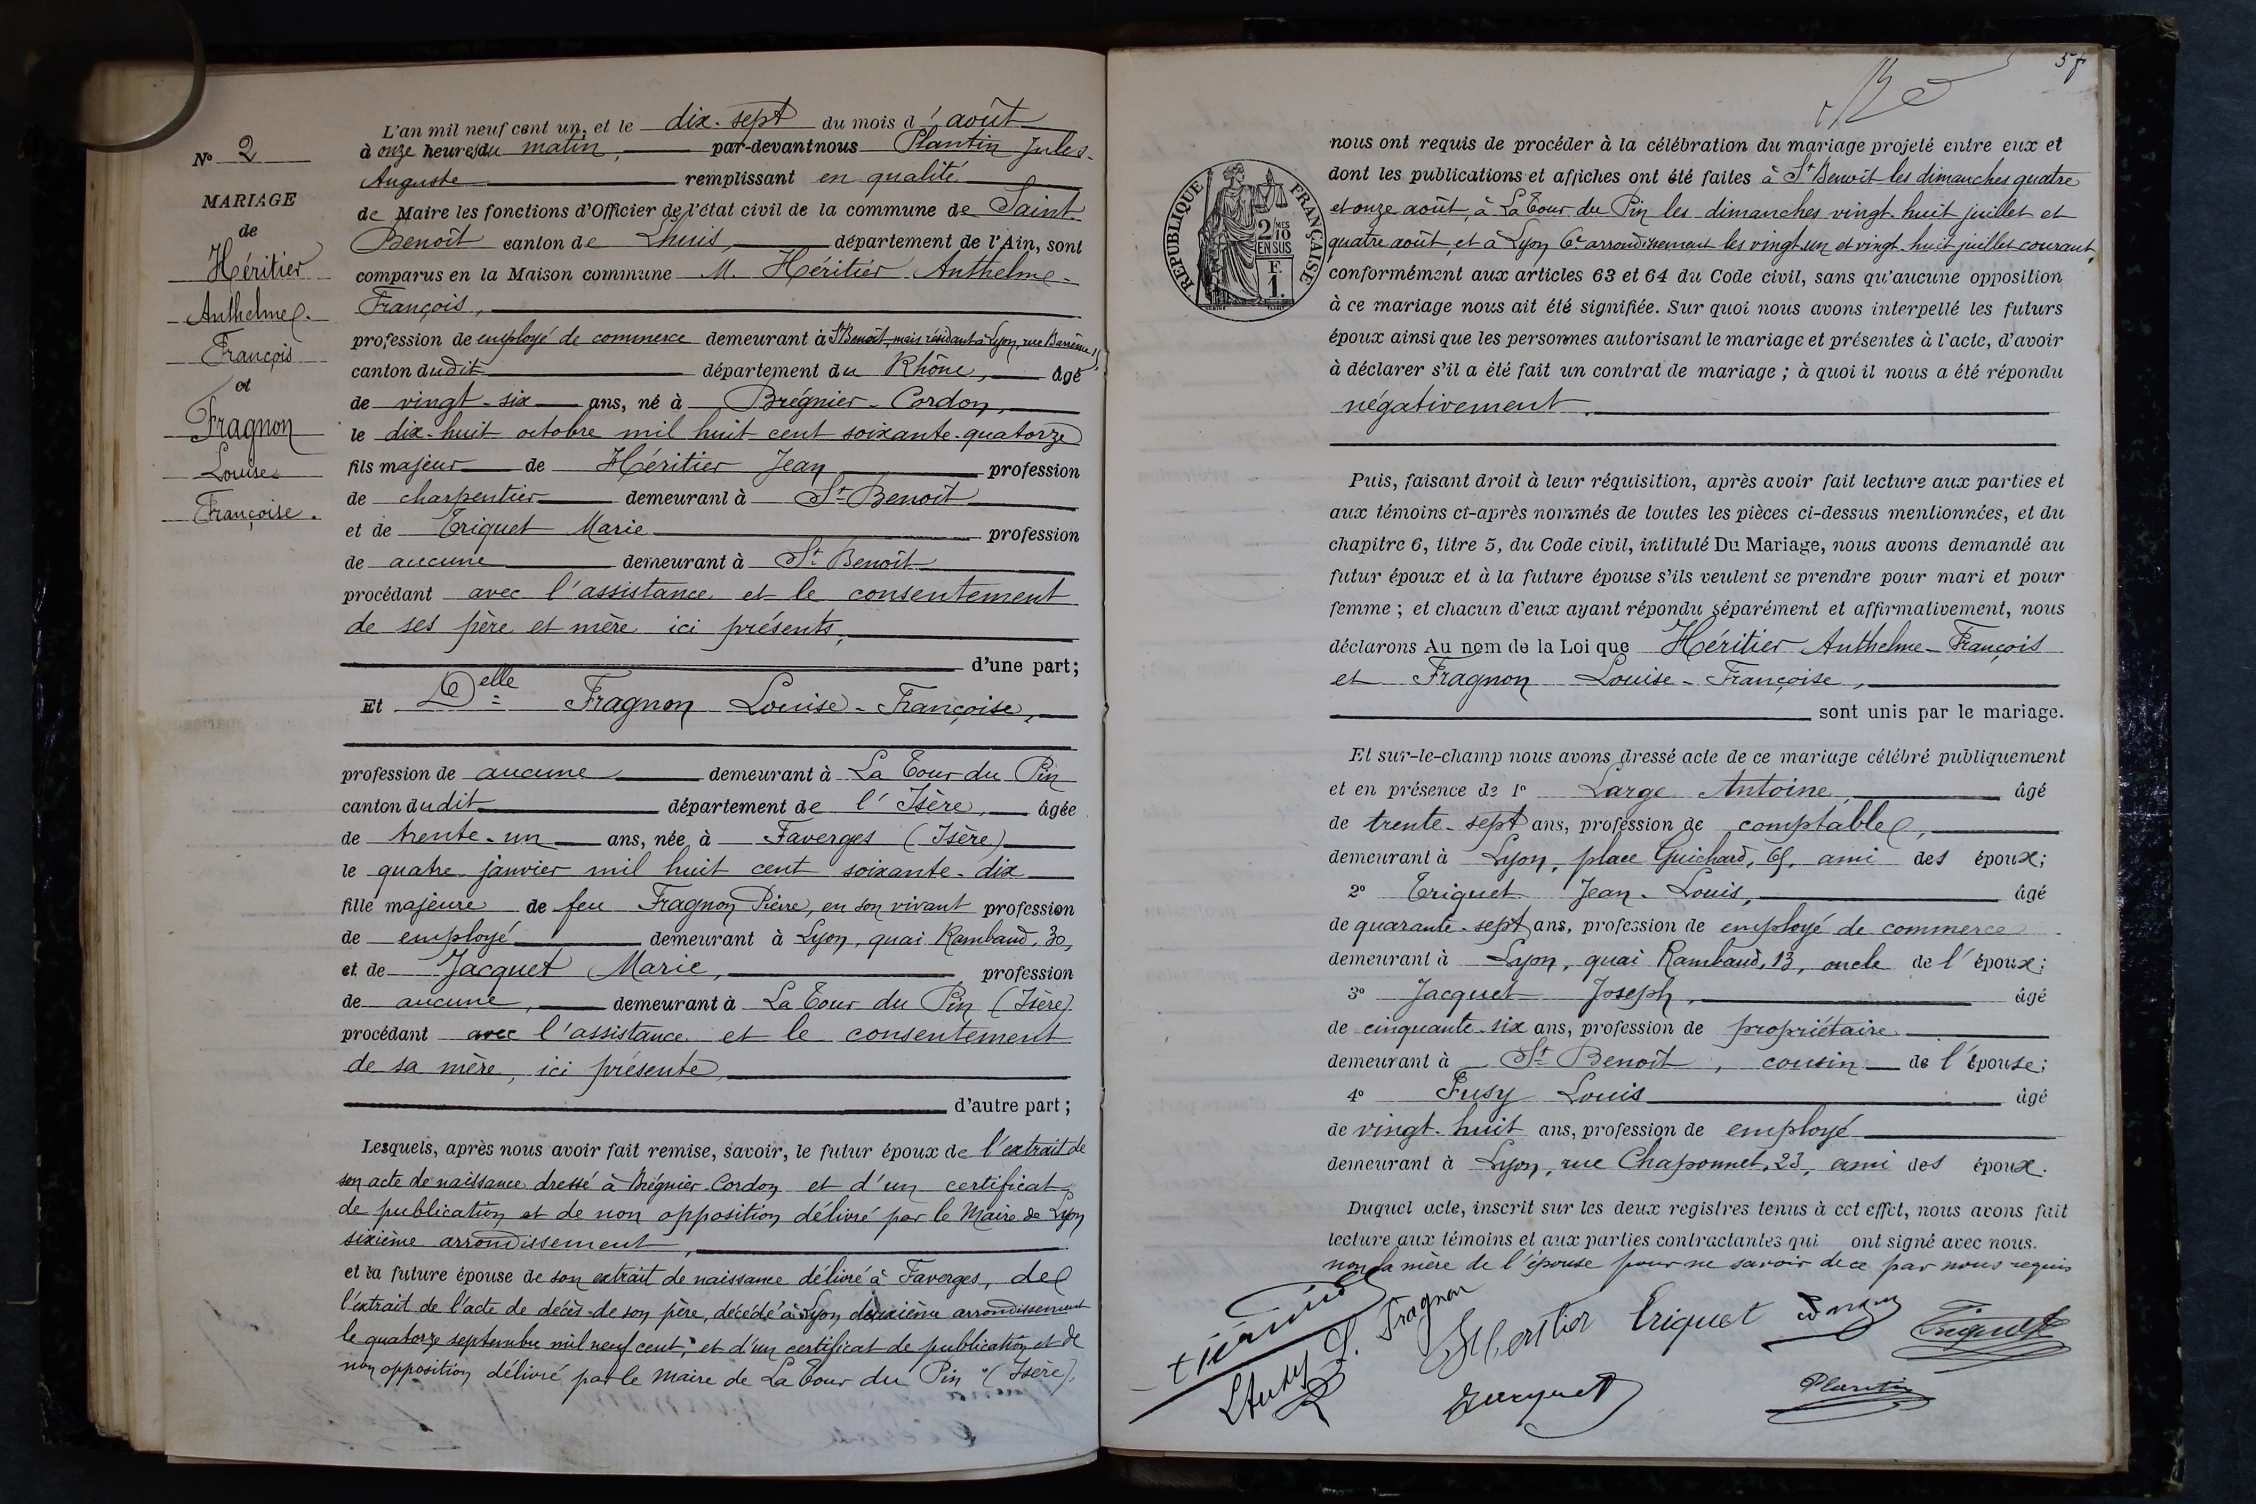 N° 2
MARIAGE
de
Héritier
Anthelme
François
et
Fragnon
Louise
Françoise.
L'an mil neuf cent un, et le dix-sept du mois d'août
à onze heures du matin, par-devant nous Plantin Jules-
Auguste remplissant en qualité
de Maire les fonctions d'Officier de l'état civil de la commune de Saint
Benoît canton de Lhuis, département de l'Ain, sont
comparus en la Maison commune M. Héritier Anthelme-
François,
profession de employé de commerce demeurant à St Benoît, mais résidant à Lyon, rue Barrême
canton dudit département du Rhône, âgé
de vingt-six ans, né à Brégnier-Cordon,
le dix-huit octobre mil huit cent soixante-quatorze
fils majeur de Héritier Jean profession
de charpentier demeurant à St Benoît
et de Triquet Marie profession
de aucune demeurant à St Benoît
procédant avec l'assistance et le consentement
de ses père et mère ici présents,
d'une part;
Et Delle Fragnon Louise-Françoise,
profession de aucune demeurant à La Tour du Pin
canton dudit département de l'Isère, âgée
de trente-un ans, née à Faverges (Isère)
le quatre janvier mil huit cent soixante-dix
fille majeure de feu Fragnon Pierre, en son vivant profession
de employé demeurant à Lyon, quai Rambaud, 30,
et de Jacquet Marie, profession
de aucune, demeurant à La Tour du Pin (Isère)
procédant avec l'assistance et le consentement
de sa mère, ici présente
d'autre part;
Lesquels, après nous avoir fait remise, savoir, le futur époux de l'extrait de
son acte de naissance dressé à Brégnier-Cordon et d'un certificat
de publication et de non opposition délivré par le Maire de Lyon
sixième arrondissement,
et la future épouse de son extrait de naissance délivré à Faverges, de
l'extrait de l'acte de décès de son père, décédé à Lyon deuxième arrondissement
le quatorze septembre mil neuf cent, et d'un certificat de publication et de
non opposition délivré par le Maire de La Tour du Pin (Isère),
nous ont requis de procéder à la célébration du mariage projeté entre eux et
dont les publications et affiches ont été faites à St Benoît les dimanches quatre
et onze août, à La Tour du Pin les dimanches vingt-huit juillet et
quatre août, et à Lyon 6e arrondissement les vingt-un et vingt-huit juillet courant,
conformément aux articles 63 et 64 du Code civil, sans qu'aucune opposition
à ce mariage nous ait été signifiée. Sur quoi nous avons interpellé les futurs
époux ainsi que les personnes autorisant le mariage et présentes à l'acte, d'avoir
à déclarer s'il a été fait un contrat de mariage; à quoi il nous a été répondu
négativement.
RÉPUBLIQUE FRANÇAISE
2/10 MES
EN SUS
F.
1.
Puis, faisant droit à leur réquisition, après avoir fait lecture aux parties et
aux témoins ci-après nommés de toutes les pièces ci-dessus mentionnées, et du
chapitre 6, titre 5, du Code civil, intitulé Du Mariage, nous avons demandé au
futur époux et à la future épouse s'ils veulent se prendre pour mari et pour
femme; et chacun d'eux ayant répondu séparément et affirmativement, nous
déclarons Au nom de la Loi que Héritier Anthelme-François
et Fragnon Louise-Françoise,
sont unis par le mariage.
Et sur-le-champ nous avons dressé acte de ce mariage célébré publiquement
et en présence de 1° Large Antoine, âgé
de trente-sept ans, profession de comptable,
demeurant à Lyon, place Guichard, ami des époux;
2° Triquet Jean-Louis, âgé
de quarante-sept ans, profession de employé de commerce
demeurant à Lyon, quai Rambaud, 13, oncle de l'époux;
3° Jacquet Joseph, âgé
de cinquante-six ans, profession de propriétaire
demeurant à St Benoît, cousin de l'épouse;
4° Fusy Louis âgé
de vingt-huit ans, profession de employé
demeurant à Lyon, rue Chaponnet, 23, ami des époux.
Duquel acte, inscrit sur les deux registres tenus à cet effet, nous avons fait
lecture aux témoins et aux parties contractantes qui ont signé avec nous.
non la mère de l'épouse pour ne savoir de ce par nous requis
L. Fragnon
Héritier
Triquet
Triquet
Jacquet
Plantin